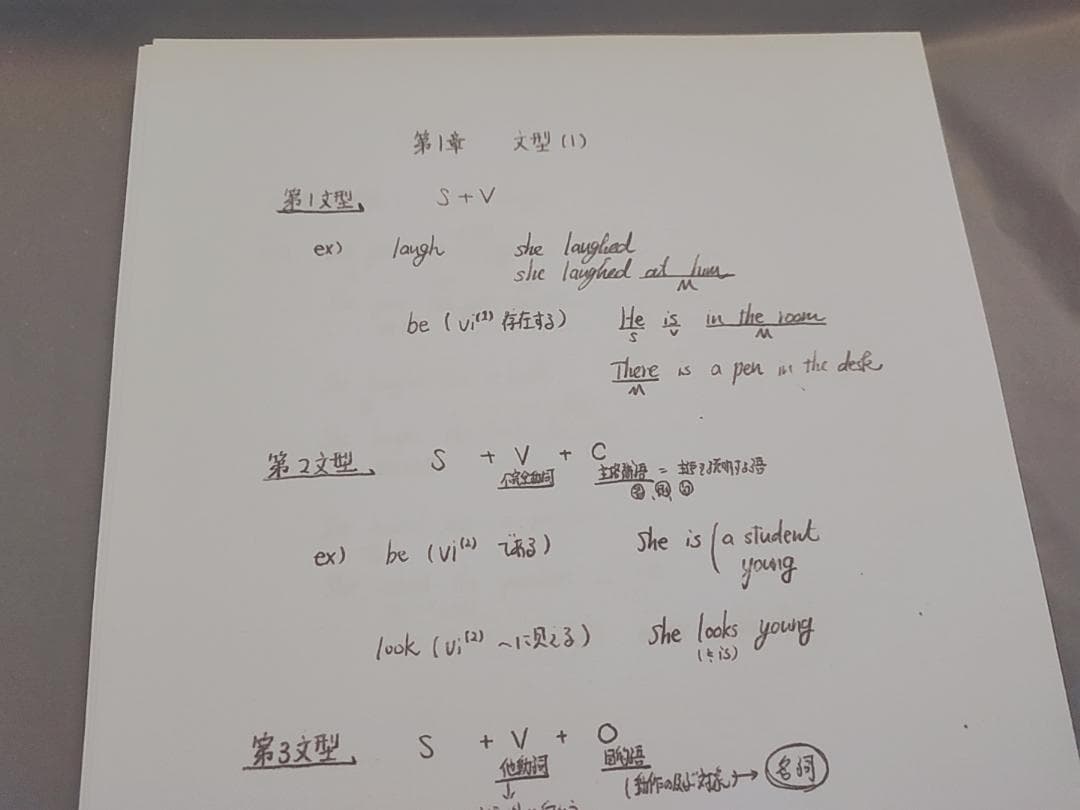 第1章 文型(1)
第1文型、 S+V
ex) laugh she laughed
she laughed at him
M
be (vi(1) 存在する) He is in the room
S V M
There is a pen in the desk
M
第2文型、 S + V + C
不完全動詞 主格補語 = 主語を説明する語
名、形、
ex) be (vi(2) である) She is ( a student
young
look (vi(2) 〜に見える) She looks young
(≒is)
第3文型、 S + V + O
他動詞 目的語
↓ (動作の及ぶ対象) → 名詞